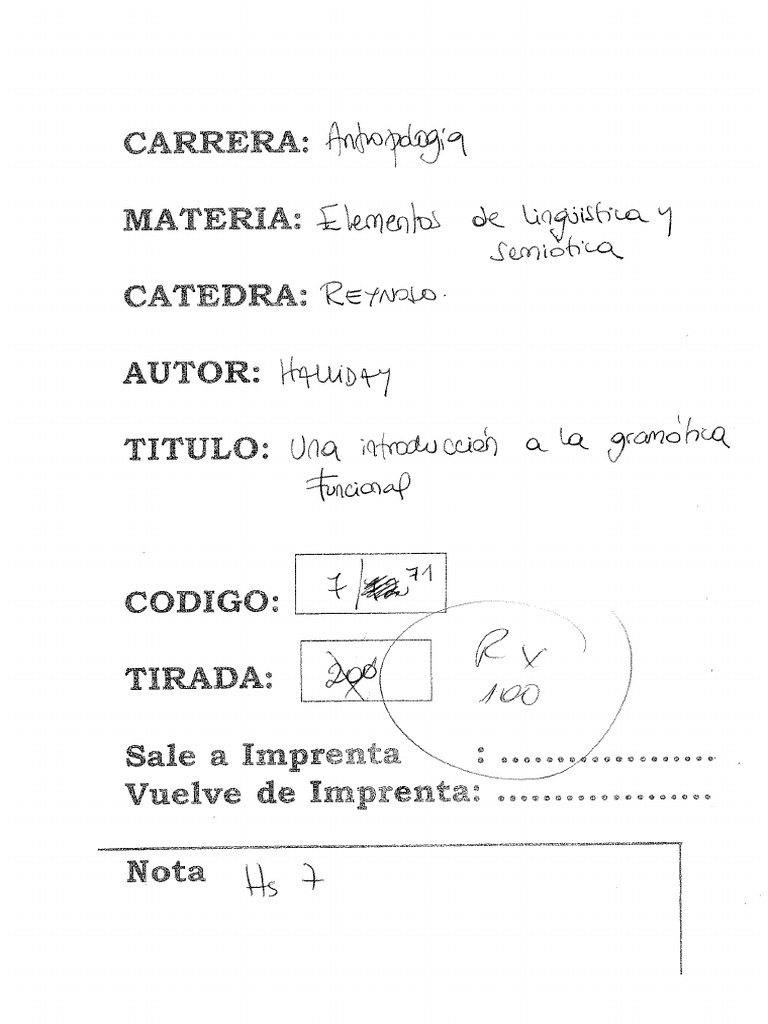 CARRERA: Antropología
MATERIA: Elementos de lingüística y
semiótica
CATEDRA: REYNOSO.
AUTOR: HALLIDAY
TITULO: Una introducción a la gramática
Funcional
CODIGO: 7/ 71
TIRADA: 200
R x
100
Sale a Imprenta : ...................
Vuelve de Imprenta: ...................
Nota Hs 7